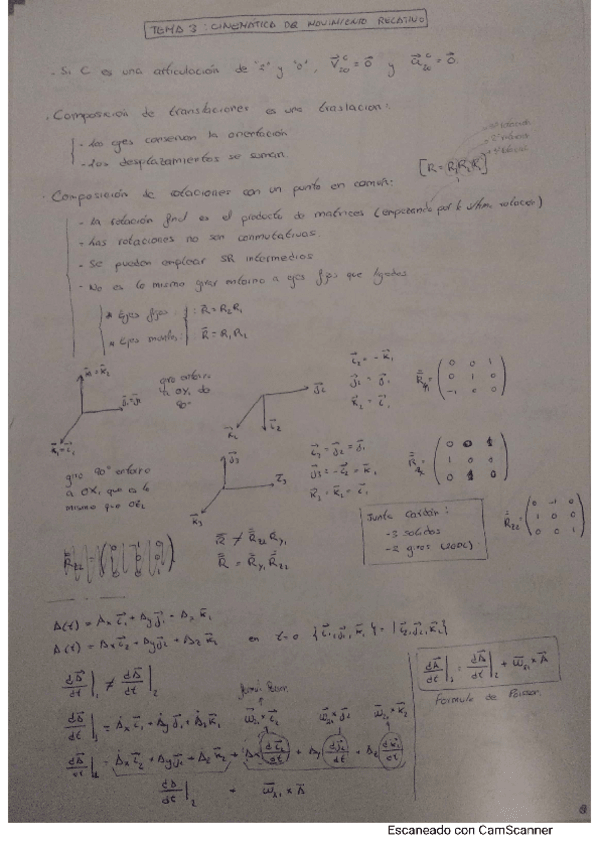 TEMA 3: CINEMATICA DEL MOVIMIENTO RELATIVO
- Si C es una articulación de "2" y "0", V⃗₂₀ᶜ = 0⃗ y a⃗₂₀ᶜ = 0⃗.
. Composición de traslaciones es una traslación:
- Los ejes conservan la orientación
- Los desplazamientos se suman.
[R = R₃R₂R₁]
· Composición de rotaciones con un punto en común:
- La rotación final es el producto de matrices (empezando por la última rotación)
- Las rotaciones no son conmutativas.
- Se pueden emplear SR intermedios
- No es lo mismo girar entorno a ejes fijos que ligados
* Ejes fijos: R̄ = R₂R₁
* Ejes : R̄ = R₁R₂
giro entorno a OY₁ de 90°
k⃗₁ i⃗₂ j⃗₂
i⃗₂ = -k⃗₁
j⃗₂ = j⃗₁
k⃗₂ = i⃗₁
R̄y₁ = ( 0 0 1
0 1 0
-1 0 0 )
giro 90° entorno
a OX, que es lo
mismo que OZ₂
j⃗₃ i⃗₃ k⃗₃
i⃗₃ = j⃗₂ = j⃗₁
j⃗₃ = -i⃗₂ = k⃗₁
k⃗₃ = k⃗₂ = i⃗₁
1 0 0
Junta Cardan:
- 3 solidos
- 2 giros (2GDL)
R̄z₂ = ( 0 -1 0
1 0 0
0 0 1 )
R̄ ≠ R̄z₂ Ry₁
R̄ = R̄y₁ R̄z₂
A(t) = Ax i⃗₁ + Ay j⃗₁ + Az k⃗₁
A(t) = Ax i⃗₂ + Ay j⃗₂ + Az k⃗₂ en t=0 {i⃗₁, j⃗₁, k⃗₁} = {i⃗₂, j⃗₂, k⃗₂}
dA⃗/dt |₁ ≠ dA⃗/dt |₂
dA⃗/dt |₁ = dA⃗/dt |₂ + ω⃗₂₁ × A⃗
Formula de Poisson.
dA⃗/dt |₁ = Ȧx i⃗₁ + Ȧy j⃗₁ + Ȧz k⃗₁
ω⃗₂₁ × i⃗₂ ω⃗₂₁ × j⃗₂ ω⃗₂₁ × k⃗₂
dA⃗/dt |₁ = Ȧx i⃗₂ + Ȧy j⃗₂ + Ȧz k⃗₂ + Ax di⃗₂/dt + Ay dj⃗₂/dt + Az dk⃗₂/dt
dA⃗/dt |₂ + ω⃗₂₁ × A⃗
Escaneado con CamScanner